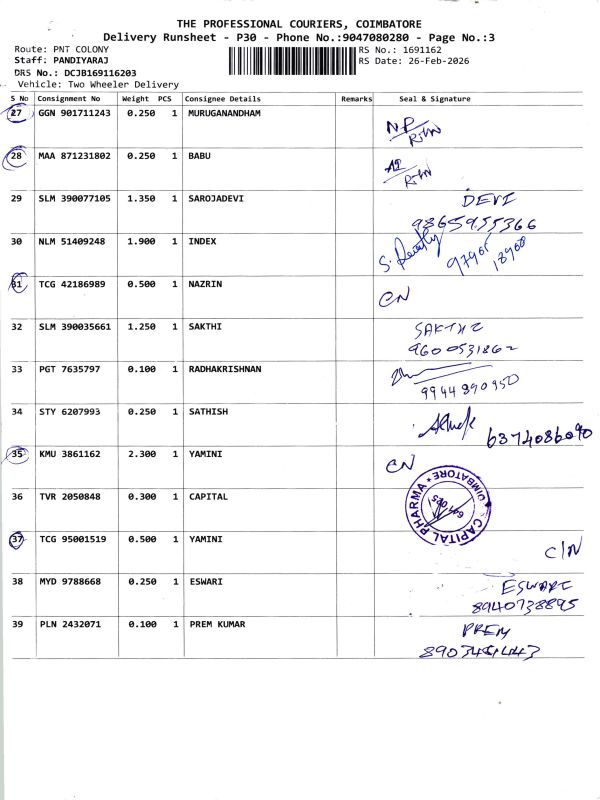 THE PROFESSIONAL COURIERS, COIMBATORE
Delivery Runsheet - P30 - Phone No.:9047080280 - Page No.:3
Route: PNT COLONY RS No.: 1691162
Staff: PANDIYARAJ RS Date: 26-Feb-2026
DRS No.: DCJB169116203
Vehicle: Two Wheeler Delivery
S No Consignment No Weight PCS Consignee Details Remarks Seal & Signature
27 GGN 901711243 0.250 1 MURUGANANDHAM
28 MAA 871231802 0.250 1 BABU
29 SLM 390077105 1.350 1 SAROJADEVI DEVI
9865955366
30 NLM 51409248 1.900 1 INDEX
31 TCG 42186989 0.500 1 NAZRIN CN
32 SLM 390035661 1.250 1 SAKTHI SAKTHI
9600531862
33 PGT 7635797 0.100 1 RADHAKRISHNAN
9944890950
34 STY 6207993 0.250 1 SATHISH
6374086090
35 KMU 3861162 2.300 1 YAMINI CN
36 TVR 2050848 0.300 1 CAPITAL CAPITAL PHARMA * COIMBATORE *
37 TCG 95001519 0.500 1 YAMINI C/N
38 MYD 9788668 0.250 1 ESWARI ESWARI
8940738895
39 PLN 2432071 0.100 1 PREM KUMAR PREM